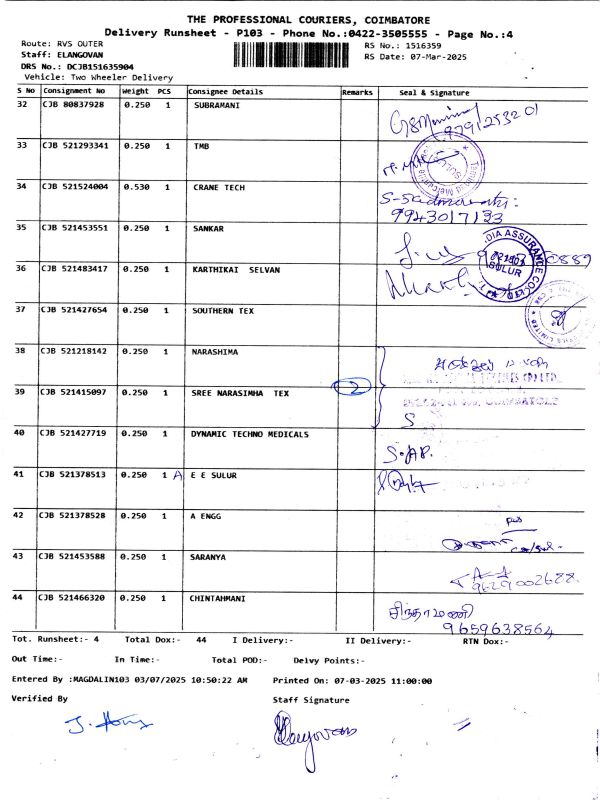 THE PROFESSIONAL COURIERS, COIMBATORE
Delivery Runsheet - P103 - Phone No.:0422-3505555 - Page No.:4
Route: RVS OUTER
RS No.: 1516359
Staff: ELANGOVAN
RS Date: 07-Mar-2025
DRS No.: DCJB151635904
Vehicle: Two Wheeler Delivery
S No Consignment No Weight PCS Consignee Details Remarks Seal & Signature
32 CJB 80837928 0.250 1 SUBRAMANI
9791253201
33 CJB 521293341 0.250 1 TMB
34 CJB 521524004 0.530 1 CRANE TECH
9943017133
35 CJB 521453551 0.250 1 SANKAR
36 CJB 521483417 0.250 1 KARTHIKAI SELVAN
DIA ASSURANCE CO
SULUR
37 CJB 521427654 0.250 1 SOUTHERN TEX
38 CJB 521218142 0.250 1 NARASHIMA
39 CJB 521415097 0.250 1 SREE NARASIMHA TEX 2
40 CJB 521427719 0.250 1 DYNAMIC TECHNO MEDICALS
41 CJB 521378513 0.250 1 A E E SULUR
42 CJB 521378528 0.250 1 A ENGG
43 CJB 521453588 0.250 1 SARANYA
9629002688
44 CJB 521466320 0.250 1 CHINTAHMANI
சிந்தாமணி
9659638564
Tot. Runsheet:- 4 Total Dox:- 44 I Delivery:- II Delivery:- RTN Dox:-
Out Time:- In Time:- Total POD:- Delvy Points:-
Entered By :MAGDALIN103 03/07/2025 10:50:22 AM Printed On: 07-03-2025 11:00:00
Verified By Staff Signature
Elangovan